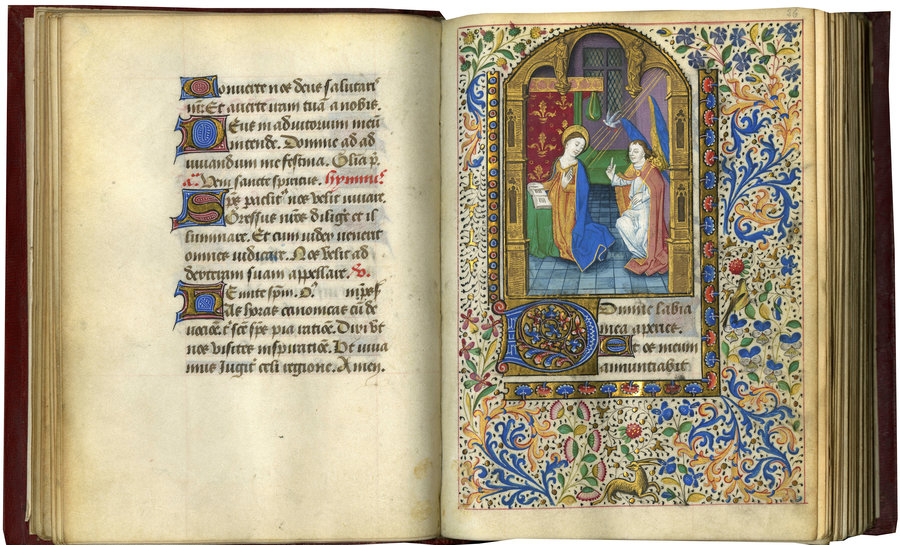 Converte nos deus salutar
nr: Et averte iram tuā a nobis.
Deus in adiutorium meū
intende. Domine ad ad
iuvandum me festina. Glia p.
a. Veni sancte spiritus. hymnus
Sps paclit' nos velit iuvare.
Gressus nros dilige et il
luminare. Et cum iudex venerit
omnes iudicare. Nos velit ad
dexteram suam appellare. V.
Emitte spm. O.
Has horas canonicas cū de
vocioē. t scē spē pia ratioē.
nos visites inspiratioē. Ut viva
mus Iugit celi regione. Amen.
26
Domine labia
mea aperies.
Et os meum
annuntiabit